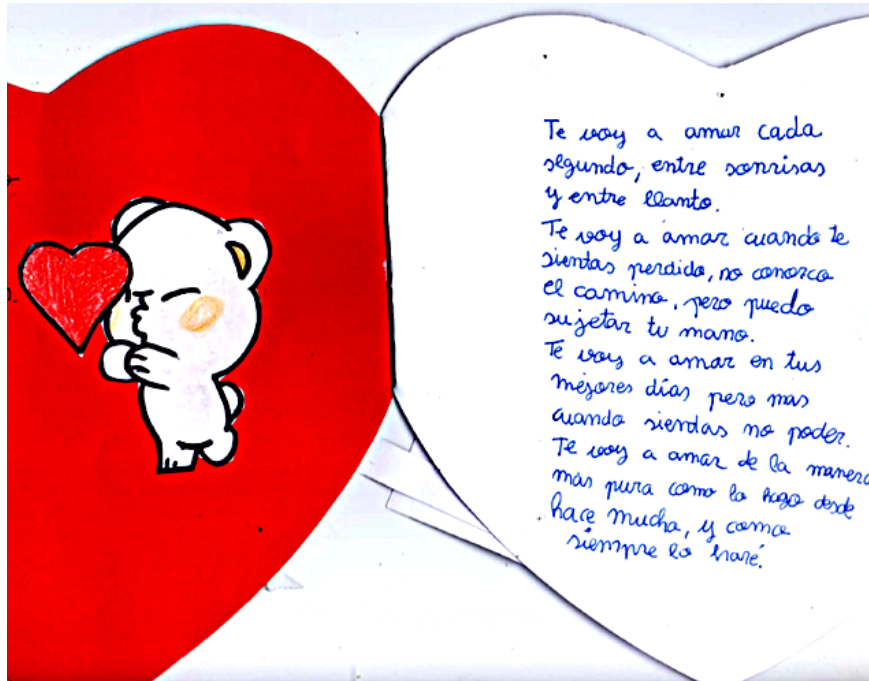 Te voy a amar cada
segundo, entre sonrisas
y entre llanto.
Te voy a amar cuando te
sientas perdido, no conozco
el camino, pero puedo
sujetar tu mano.
Te voy a amar en tus
mejores días pero mas
cuando sientas no poder.
Te voy a amar de la manera
mas pura como lo hago desde
hace mucho, y como
siempre lo haré.